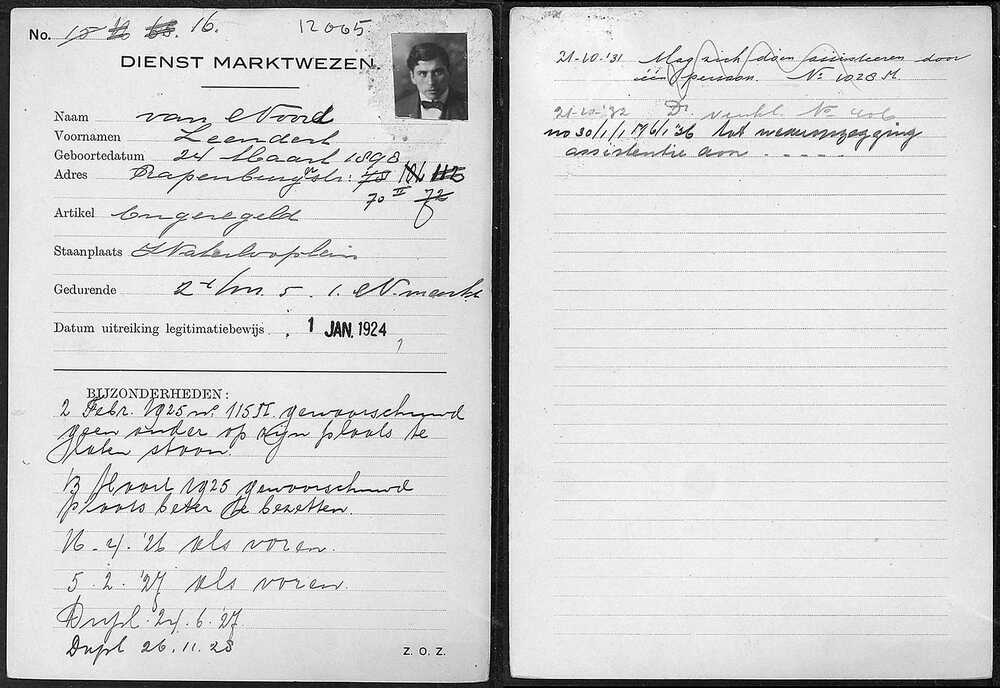 No. 16. 12065
DIENST MARKTWEZEN.
Naam van Noord
Voornamen Leendert
Geboortedatum 24 Maart 1898
Adres Rapenburgerstr:
70 II 72
Artikel Ongeregeld
Staanplaats Waterlooplein
Gedurende 5 1. N. markt
Datum uitreiking legitimatiebewijs 1 JAN. 1924
BIJZONDERHEDEN:
2 Febr. 1925 no. 115 M gewaarschuwd
geen ander op zijn plaats te
laten staan.
13 Maart 1925 gewaarschuwd
plaats beter te bezetten.
16-4-'26 als voren.
5.2.'27 als voren.
Dupl. 24.6.'27
Dupl 26.11.28
Z. O. Z.
21-10-'31 Mag zich doen assisteeren door
één persoon. No 1028 M.
21-12-'32 Dr. No 406
no 30/1/1 1936 tot wederopzegging
assistentie door . . . . .